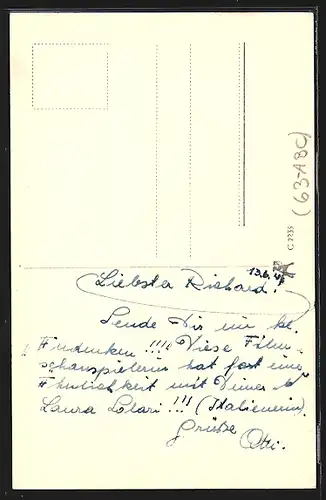 13.6.41
Liebster Richard!
Sende Dir ein kl.
Andenken !!!! Diese Film-
schauspielerin hat fast eine
Ähnlichkeit mit Deiner
Laura Solari !!! (Italienerin).
Grüsse
Otti.
(63-ABC)